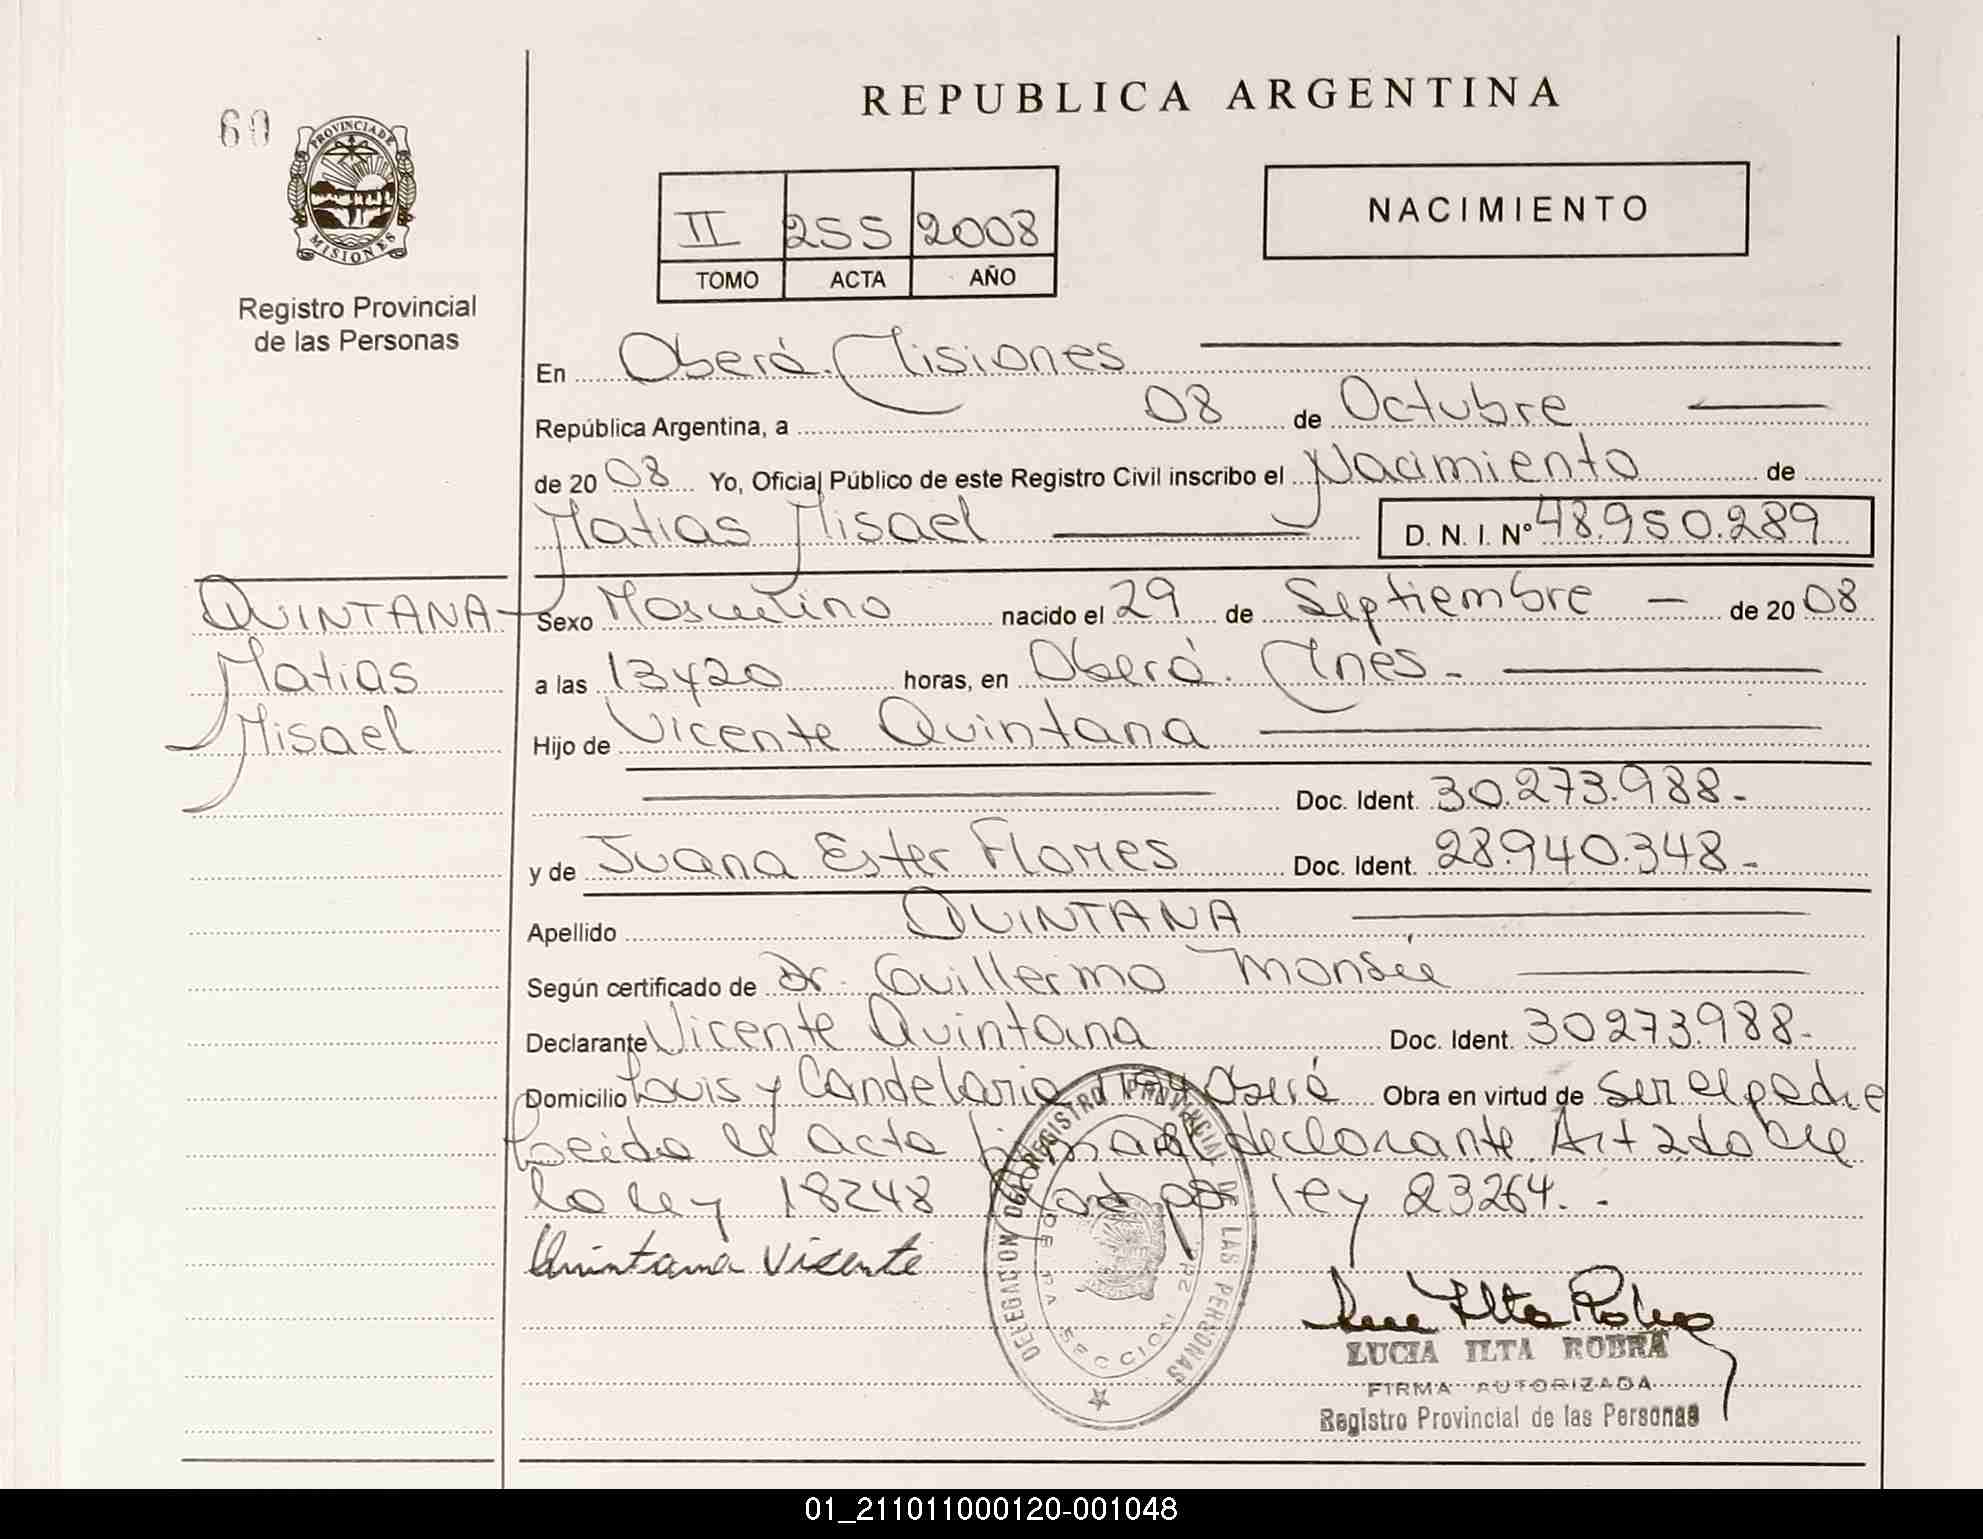 REPUBLICA ARGENTINA
60
PROVINCIA DE MISIONES
Registro Provincial
de las Personas
II 255 2008
TOMO ACTA AÑO
NACIMIENTO
En Oberá. Misiones
República Argentina, a 08 de Octubre
de 2008 Yo, Oficial Público de este Registro Civil inscribo el Nacimiento de
Matias Misael D. N. I. Nº 48.950.289
QUINTANA
Matias
Misael
Sexo Masculino nacido el 29 de Septiembre - de 2008
a las 13y20 horas, en Oberá. Mnes.-
Hijo de Vicente Quintana
Doc. Ident. 30.273.988-
y de Juana Ester Flores Doc. Ident. 28.940.348-
Apellido QUINTANA
Según certificado de Dr. Guillermo
Declarante Vicente Quintana Doc. Ident. 30273.988-
Domicilio Louis y Candelaria Oberá Obra en virtud de ser el padre
Leida el acta firma el declarante Art 2do de
la ley 18248 por ley 23264.-
Quintana Vicente
DELEGACION DEL REGISTRO PROVINCIAL DE LAS PERSONAS
SECCION
LUCIA ILTA ROBRA
FIRMA AUTORIZADA
Registro Provincial de las Personas
01_211011000120-001048